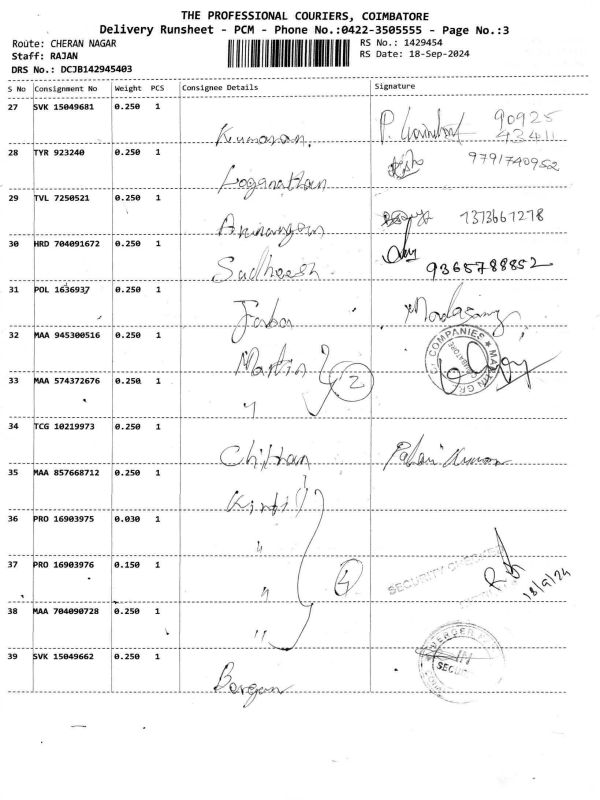 THE PROFESSIONAL COURIERS, COIMBATORE
Delivery Runsheet - PCM - Phone No.:0422-3505555 - Page No.:3
Route: CHERAN NAGAR
RS No.: 1429454
Staff: RAJAN
RS Date: 18-Sep-2024
DRS No.: DCJB142945403
S No Consignment No Weight PCS Consignee Details Signature
27 SVK 15049681 0.250 1 Kumaran 90925 43411
28 TYR 923240 0.250 1 Loganathan 9791740952
29 TVL 7250521 0.250 1
30 HRD 704091672 0.250 1 Sadheesh 9365788852
31 POL 1636937 0.250 1
32 MAA 945300516 0.250 1 Martin 2
COMPANIES
33 MAA 574372676 0.250 1 "
34 TCG 10219973 0.250 1
35 MAA 857668712 0.250 1
36 PRO 16903975 0.030 1 "
37 PRO 16903976 0.150 1 "
SECURITY CHECKED
18/9/24
38 MAA 704090728 0.250 1 "
39 SVK 15049662 0.250 1
IN